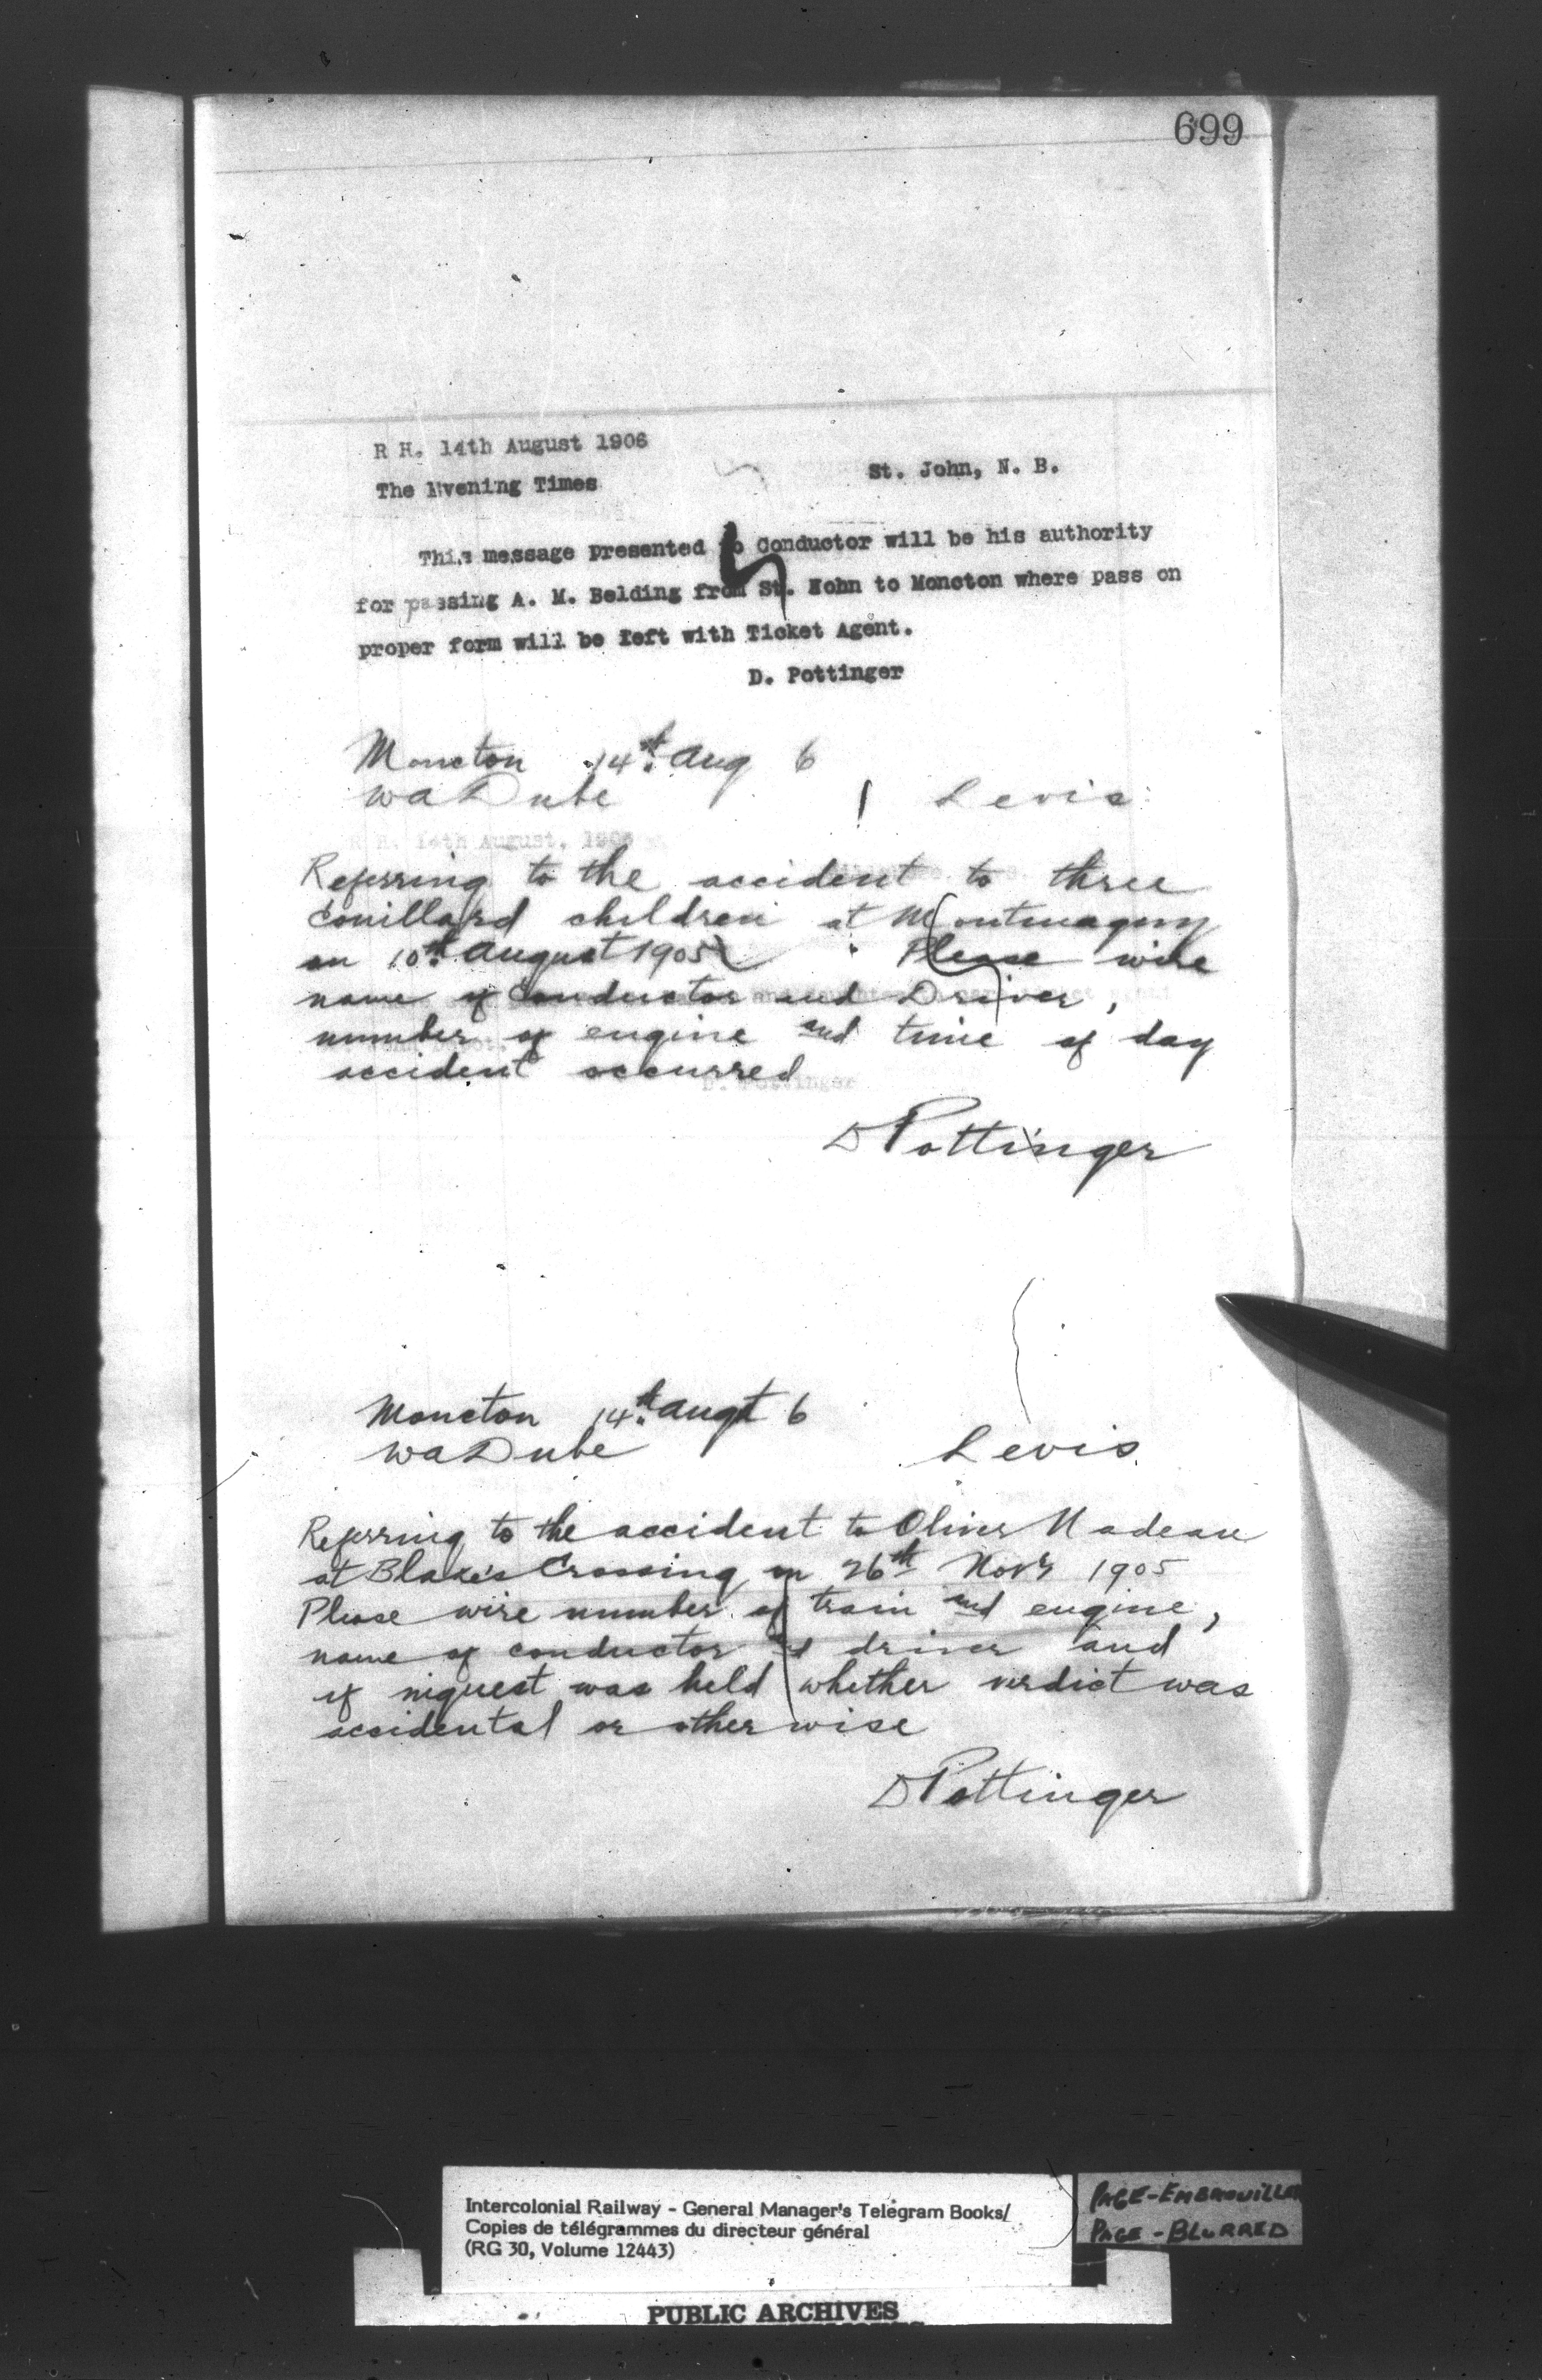 699
R H. 14th August 1906
The Evening Times
St. John, N. B.
This message presented to Conductor will be his authority
for passing A. M. Belding from St. Hohn to Moncton where pass on
proper form will be left with Ticket Agent.
D. Pottinger
Moncton 14th Aug 6
W A Dube Levis
R H. 14th August, 1906
Referring to the accident to three
Couillard children at Montmagny
on 10th August 1905 Please wire
name of Conductor and Driver,
number of engine and time of day
accident occurred
D. Pottinger
D Pottinger
Moncton 14th Augt 6
W A Dube Levis
Referring to the accident to Oliver Nadeau
at Blake's Crossing on 26th Novr 1905
Please wire number of train and engine,
name of conductor & driver and
if inquest was held whether verdict was
accidental or otherwise
D Pottinger
Intercolonial Railway - General Manager's Telegram Books/
Copies de télégrammes du directeur général
(RG 30, Volume 12443)
PAGE-EMBROUILLEE
PAGE-BLURRED
PUBLIC ARCHIVES